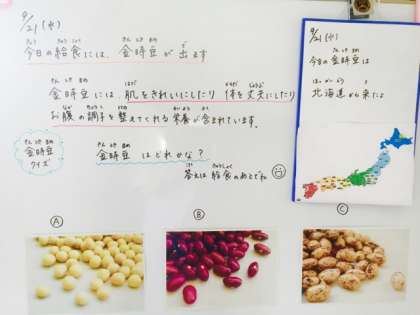 9/21(水)
今日の給食には、金時豆が出ます
金時豆には、肌をきれいにしたり 体を丈夫にしたり
お腹の調子を整えてくれる栄養が含まれています。
金時豆
クイズ
金時豆はどれかな?
答えは給食のあとでね
A
B
C
9/21(水)
今日の金時豆は
北海道から来たよ